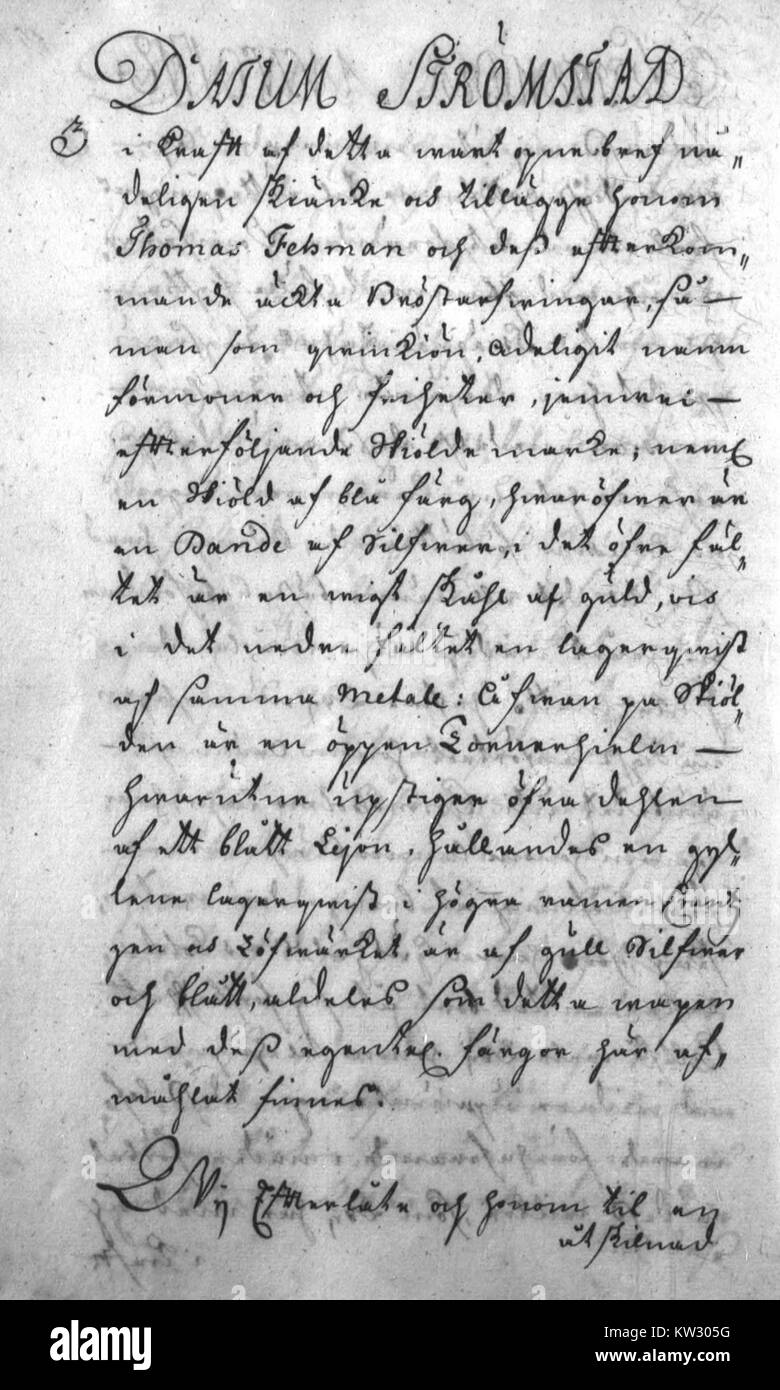 DATUM STRÖMSTAD
i Krafft af detta wårt öpne bref nå„
deligen skiänke os tillägge honom
Thomas Fehman och deß effterkom„
mande äckta Bröstarfwingar, så—
man som qwinkiön, adeligit namn
förmoner och friheter, jemwei—
effterföljande Skiölde marke; neml
en Skiöld af blå färg, hwaröfwer är
en Bande af Silfwer, i det öfre fäl„
tet är en wigt skåhl af gůld, os
i det nedre fältet en lagerqwist
af samma Metall: Åfwan på Skiöl„
den är en öppen Tornerhielm—
hwarutur ůpstiger öfra dehlen
af ett blått Lejon, hållandes en gyl„
lene lagerqwist i högra ramen
gen os Löfwärket är af gůll Silfwer
och blått, aldeles som detta wapen
med deß egentel. färgor här af„
måhlat finnes.
Wij Effterlåte och honom til en
åtskilnad
alamy
Image ID: KW305G
www.alamy.com